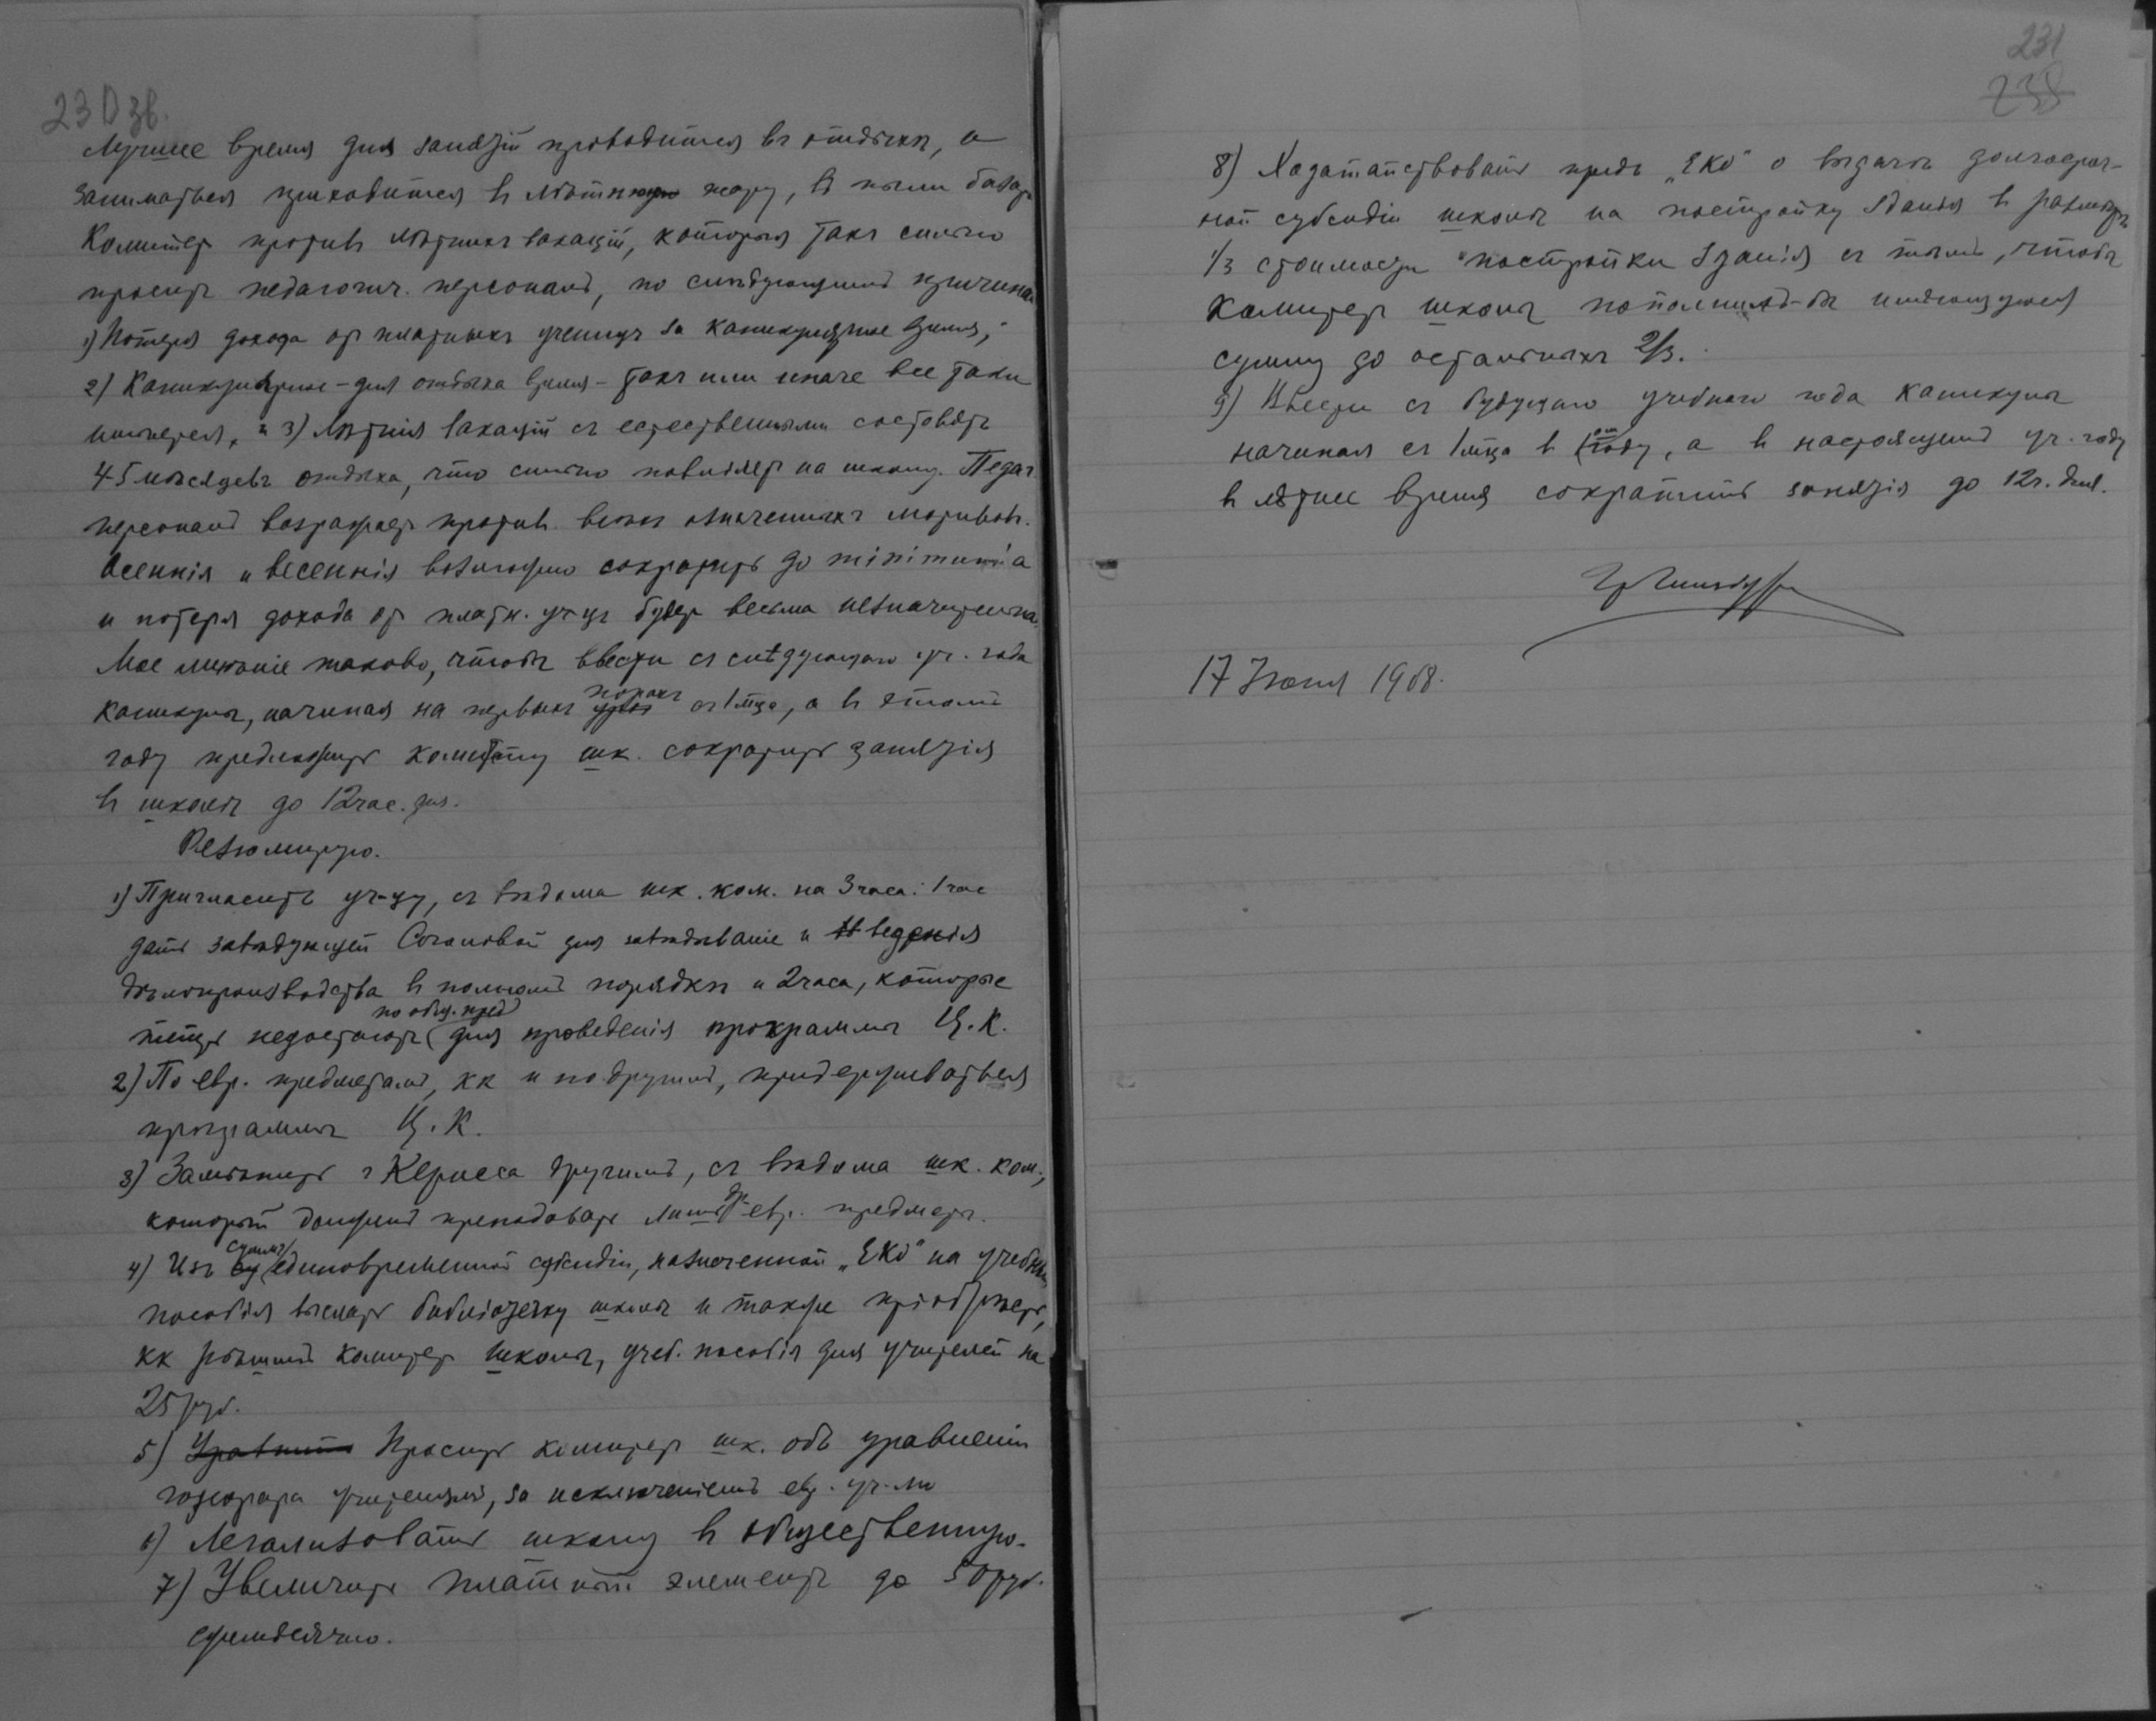 230 зв.
Лучшее время для занятій проводится въ отдыхѣ, и
заниматься приходится въ лѣтнюю жару, въ пыли базара
Комитетъ противъ лѣтнихъ вакацій, которыя такъ сильно
проситъ педагогич. персоналъ, по слѣдующимъ причинамъ
1) Потеря дохода отъ платныхъ ученицъ за каникулярное время;
2) Каникулярное - для отдыха время - такъ или иначе все таки
имѣется, и 3) Лѣтнія вакаціи съ естественными составятъ
4-5 мѣсяцевъ отдыха, что сильно повліяетъ на школу. Педаг.
персоналъ возражаетъ противъ всѣхъ означенныхъ мотивовъ.
Осеннія и весеннія возможно сократить до minimum'а
и потеря дохода отъ платн. уч-цъ будетъ весьма незначительна.
Мое мнѣніе таково, чтобы ввести съ слѣдующаго уч. года
каникулы, начиная на первыхъ порахъ съ 1 мца, а въ этомъ
году предложить комитету шк. сократить занятія
въ школѣ до 12 час. дня.
Резюмирую.
1) Пригласить уч-цу, съ вѣдома шк. ком. на 3 часа: 1 час
дать завѣдующей Согаловой для завѣдыванія и веденія
дѣлопроизводства въ полномъ порядкѣ и 2 часа, которые
недостаютъ (по общ. пред. для проведенія программы Ц.К.
2) По евр. предметамъ, кк и по другимъ, придерживаться
программы Ц.К.
3) Замѣнить г Кернеса другимъ, съ вѣдома шк. ком.,
который долженъ преподавать лишь др-евр. предметы.
4) Изъ суммы единовременной субсидіи, назначенной „ЕКО" на учебныя
пособія выслать библіотечку школы и также пріобрѣсть,
кк рѣшилъ комитетъ школы, учеб. пособія для учителей на
25 руб.
5) Уравнить Просить комитетъ шк. объ уравненіи
гонорара учителямъ, за исключеніемъ евр. уч-ля
6) Легализовать школу въ общественную.
7) Увеличить платный элементъ до 50 руб.
ежемѣсячно.
231
238
8) Ходатайствовать предъ „ЕКО" о выдачѣ долгосроч-
ной субсидіи школы на постройку зданія въ размѣрѣ
1/3 стоимости постройки зданія съ тѣмъ, чтобы
Комитетъ школы пополнилъ-бы имѣющуюся
сумму до остальныхъ 2/3.
9) Ввести съ будущаго учебнаго года каникулы
начиная съ 1 мца въ году, а въ настоящемъ уч. году
въ лѣтнее время сократить занятія до 12 ч. дня.
17 Іюня 1908.